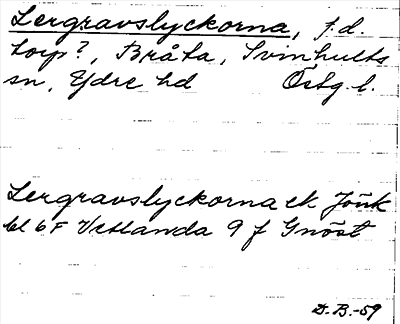 Lergravslyckorna, f.d.
torp?, Bråta, Svinhults
sn, Ydre hd Östg. l.
Lergravslyckorna ek Jönk
bl 6F Vetlanda 9 f Gnöst
D.B.-59